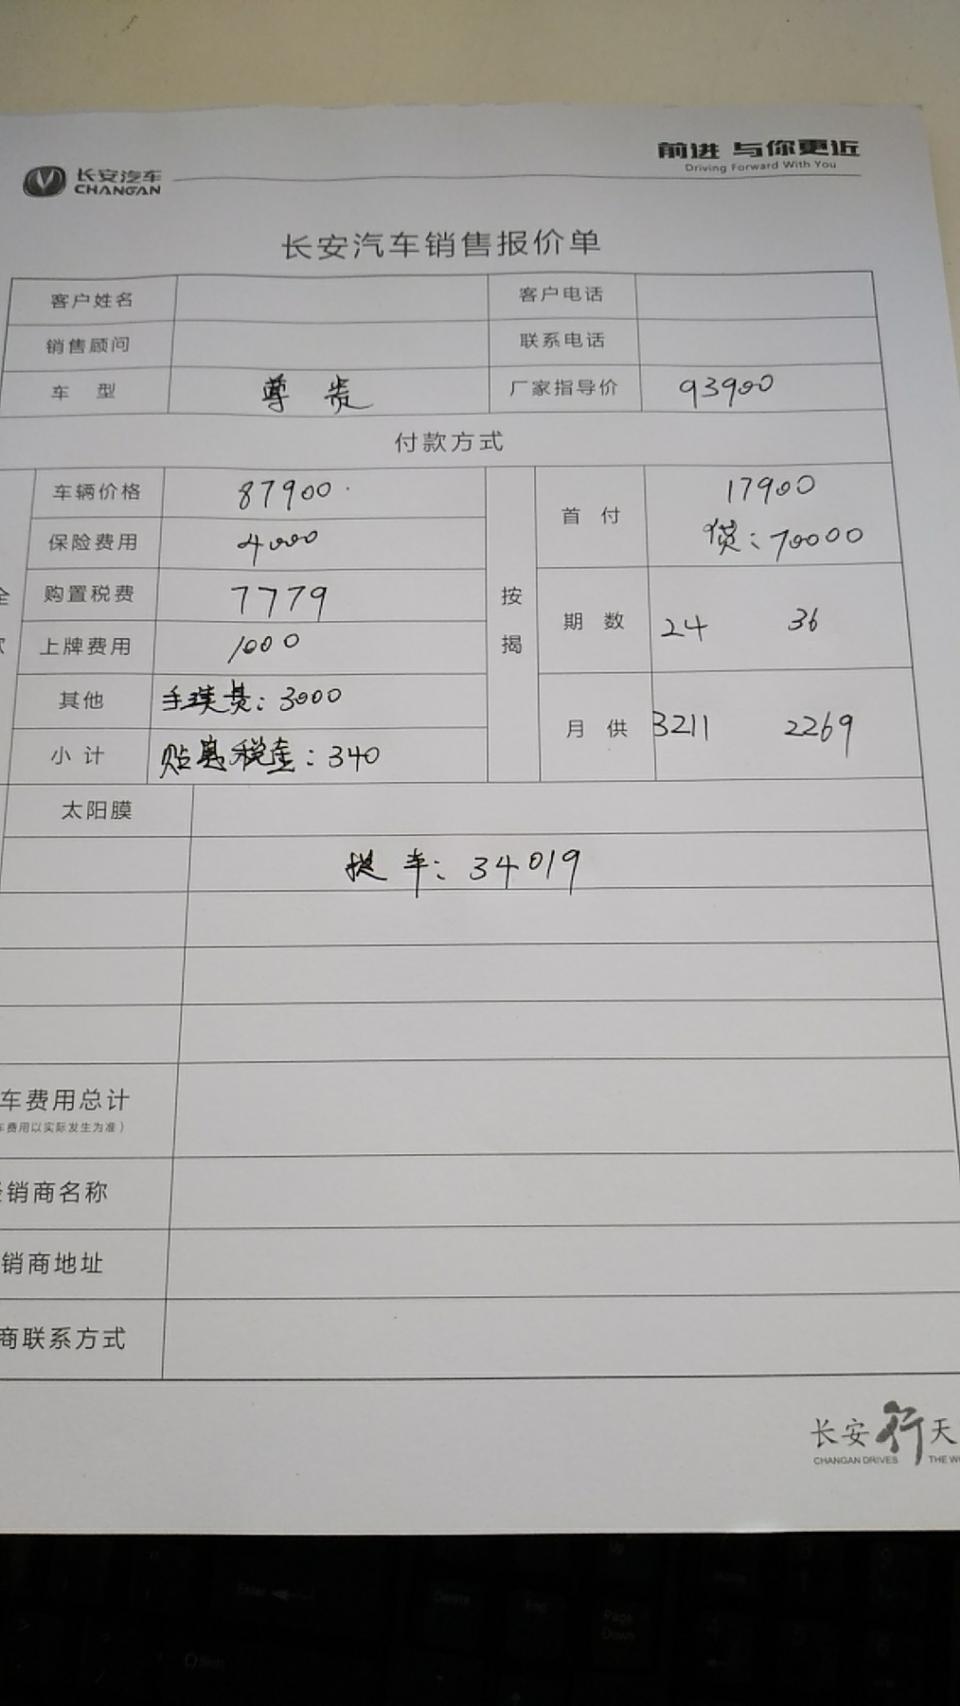 前进 与你更近
Driving Forward With You
长安汽车
CHANGAN
长安汽车销售报价单
客户姓名 客户电话
销售顾问 联系电话
车 型 尊贵 厂家指导价 93900
付款方式
车辆价格 87900 首 付 17900
贷：70000
保险费用 4000
购置税费 7779 按揭 期 数 24 36
上牌费用 1000
其他 手续费：3000 月 供 3211 2269
小 计 贴息税金：340
太阳膜
提车：34019
车费用总计
车费用以实际发生为准）
销商名称
销商地址
商联系方式
长安行天
CHANGAN DRIVES THE WO
Enter
Delete
End
Page
Down
Shift